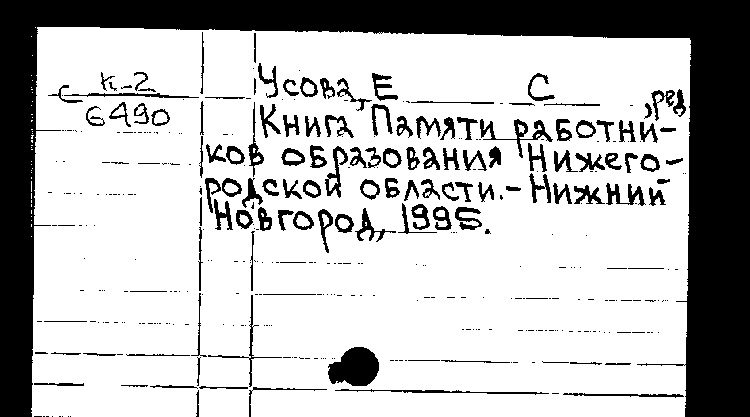 С К-2
6490
Усова, Е С , ред
Книга Памяти работни-
ков образования Нижего-
родской области.- Нижний
Новгород, 1995.